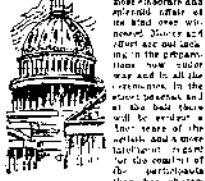 most elaborate and
splendid affair of
its kind ever wit-
nessed. Money and
effort are not lack-
ing in the prepara-
tions now under
way and in all the
ceremonies, in the
street parades and
at the ball there
will be evident a
finer sense of the
artistic and a more
intelligent regard
for the comfort of
the participants
than has